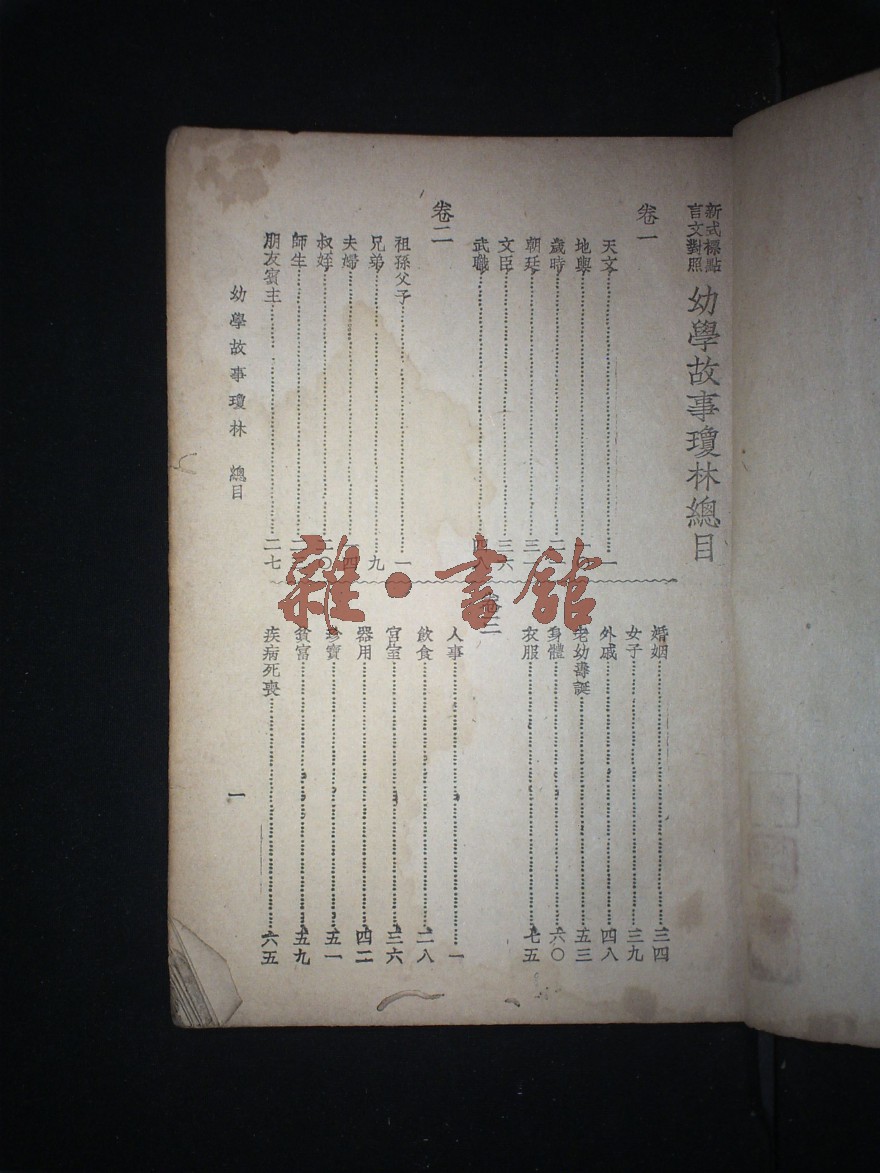 新式標點
言文對照
幼學故事瓊林總目
卷一
天文…一
地輿…
歲時…二
朝廷…三一
文臣…三六
武職…四八
卷二
祖孫父子…一
兄弟…九
夫婦…一四
叔姪…二〇
師生…二
朋友賓主…二七
婚姻…三四
女子…三九
外戚…四八
老幼壽誕…五三
身體…六〇
衣服…七五
卷三
人事…一
飲食…二八
宮室…三六
器用…四二
珍寶…五一
貧富…五九
疾病死喪…六五
幼學故事瓊林 總目
一
雜·書館